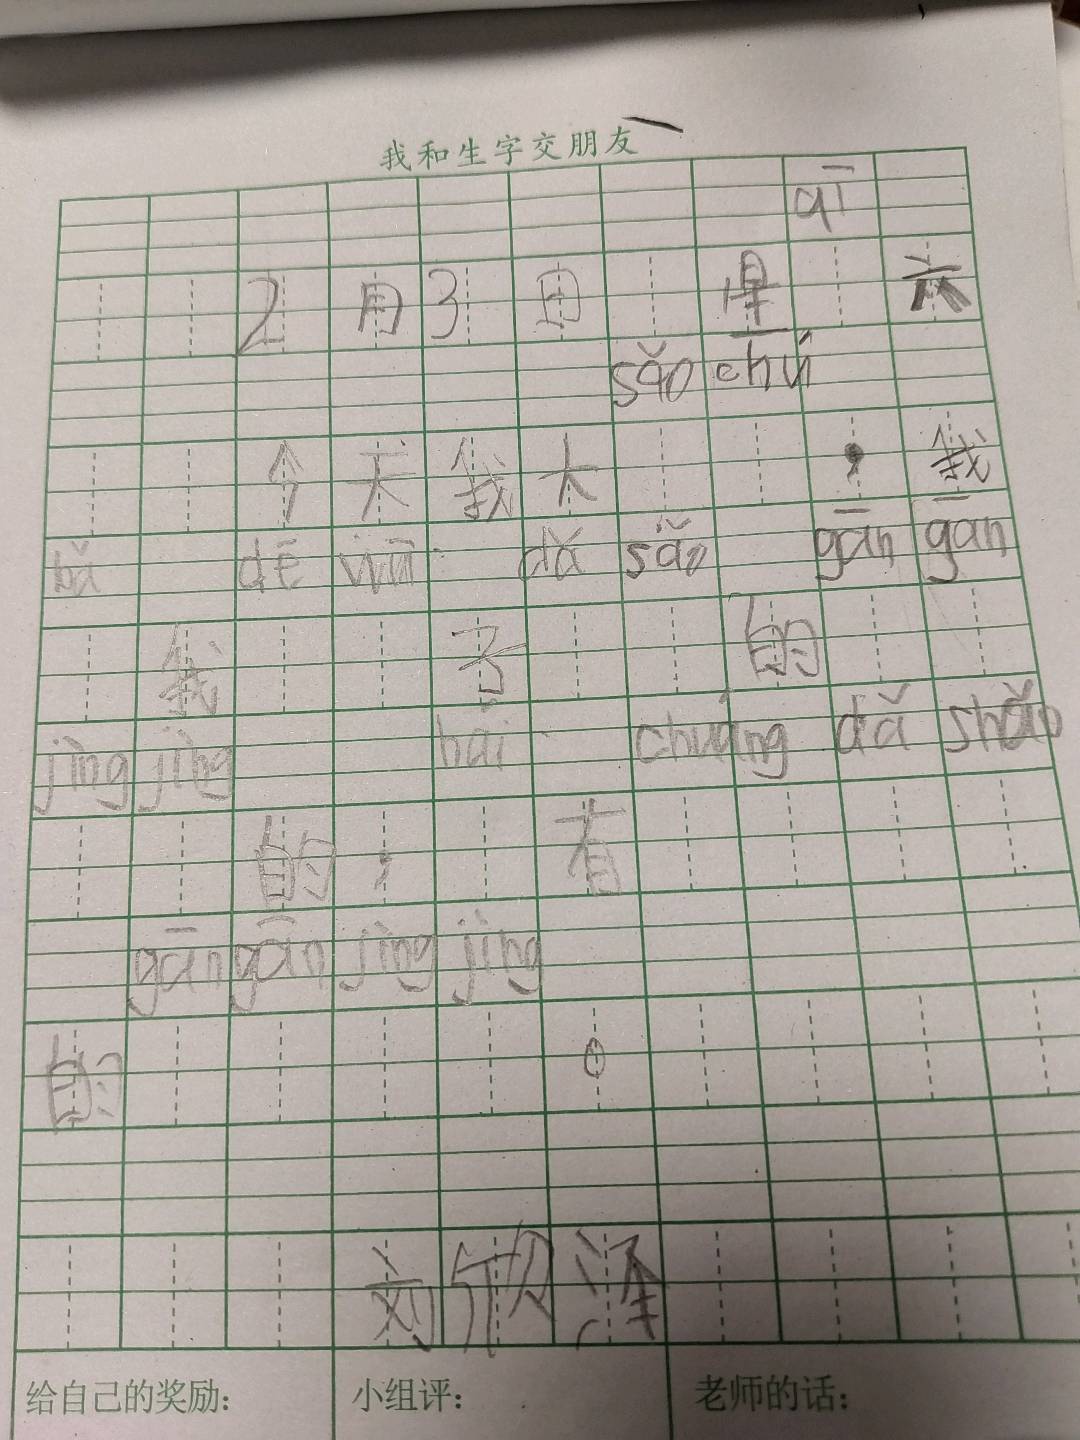 我和生字交朋友
qī
2月3日 星 六
sǎo chú
今天我大 ，我
bǎ dē wū dǎ sǎo gān gān
我 子 的
jìng jìng hái chuáng dǎ shǎo
的， 有
gān gān jìng jìng
的 。
刘欣泽
给自己的奖励： 小组评： 老师的话：